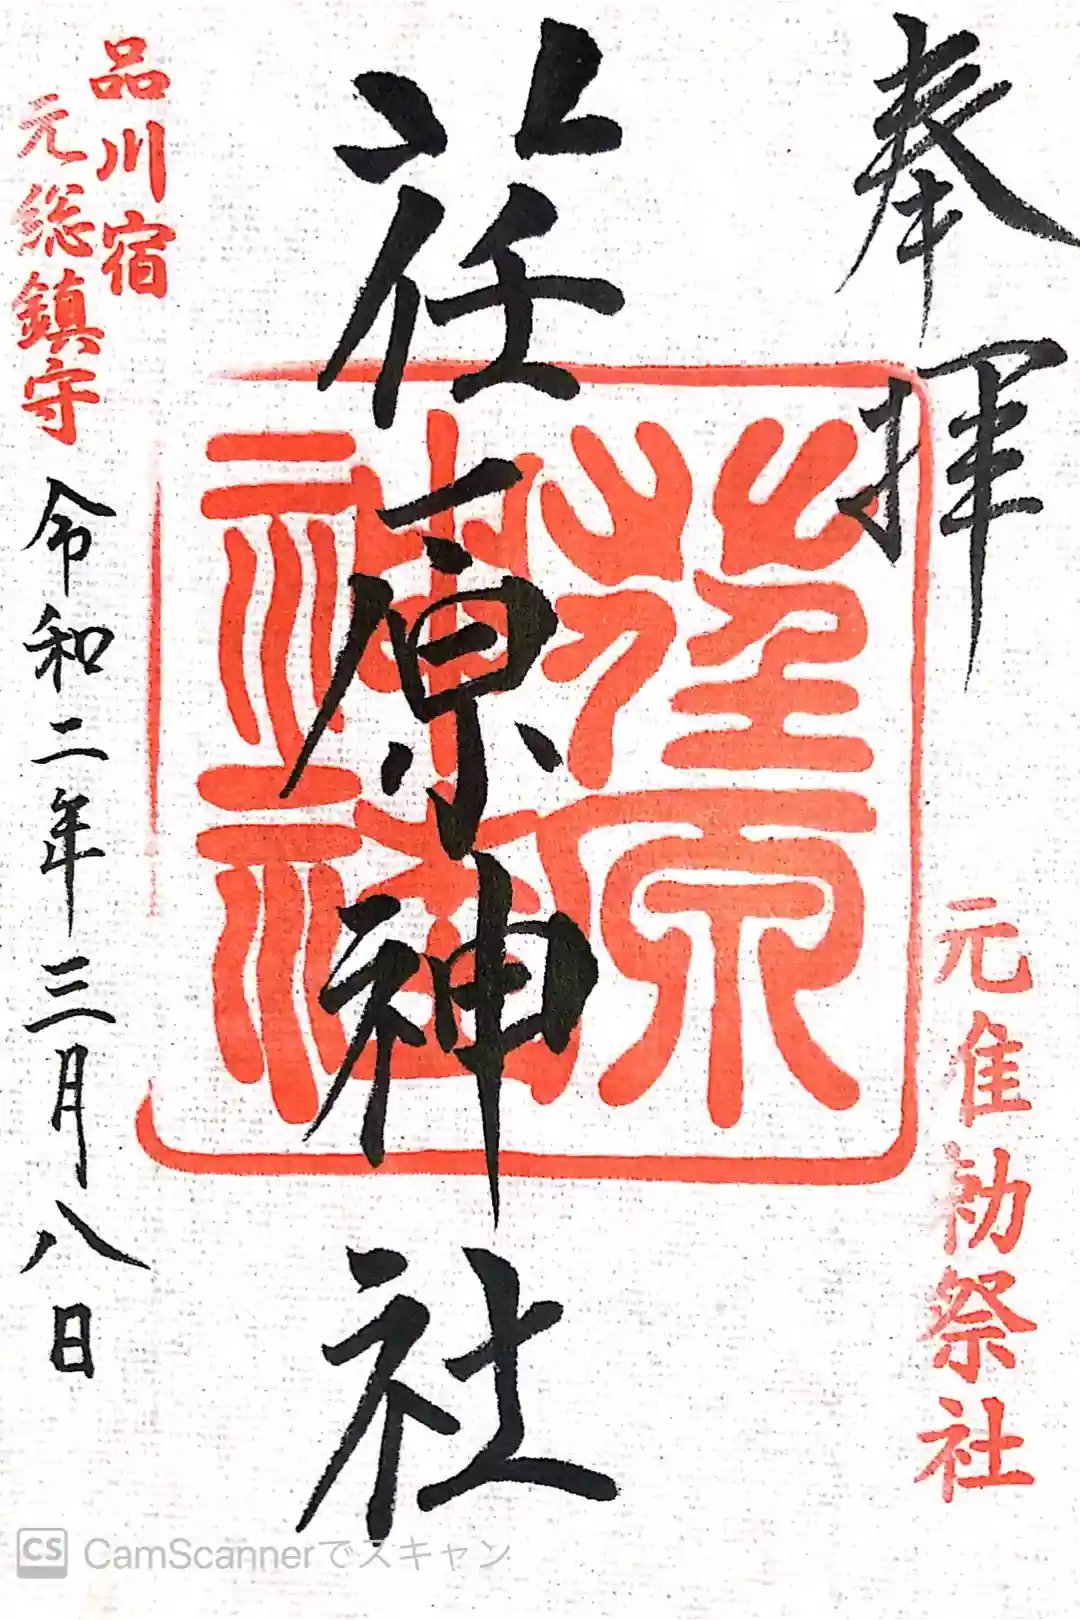 奉拝
元准勅祭社
荏原神社
荏原神社
品川宿
元総鎮守
令和二年三月八日
CS CamScannerでスキャン